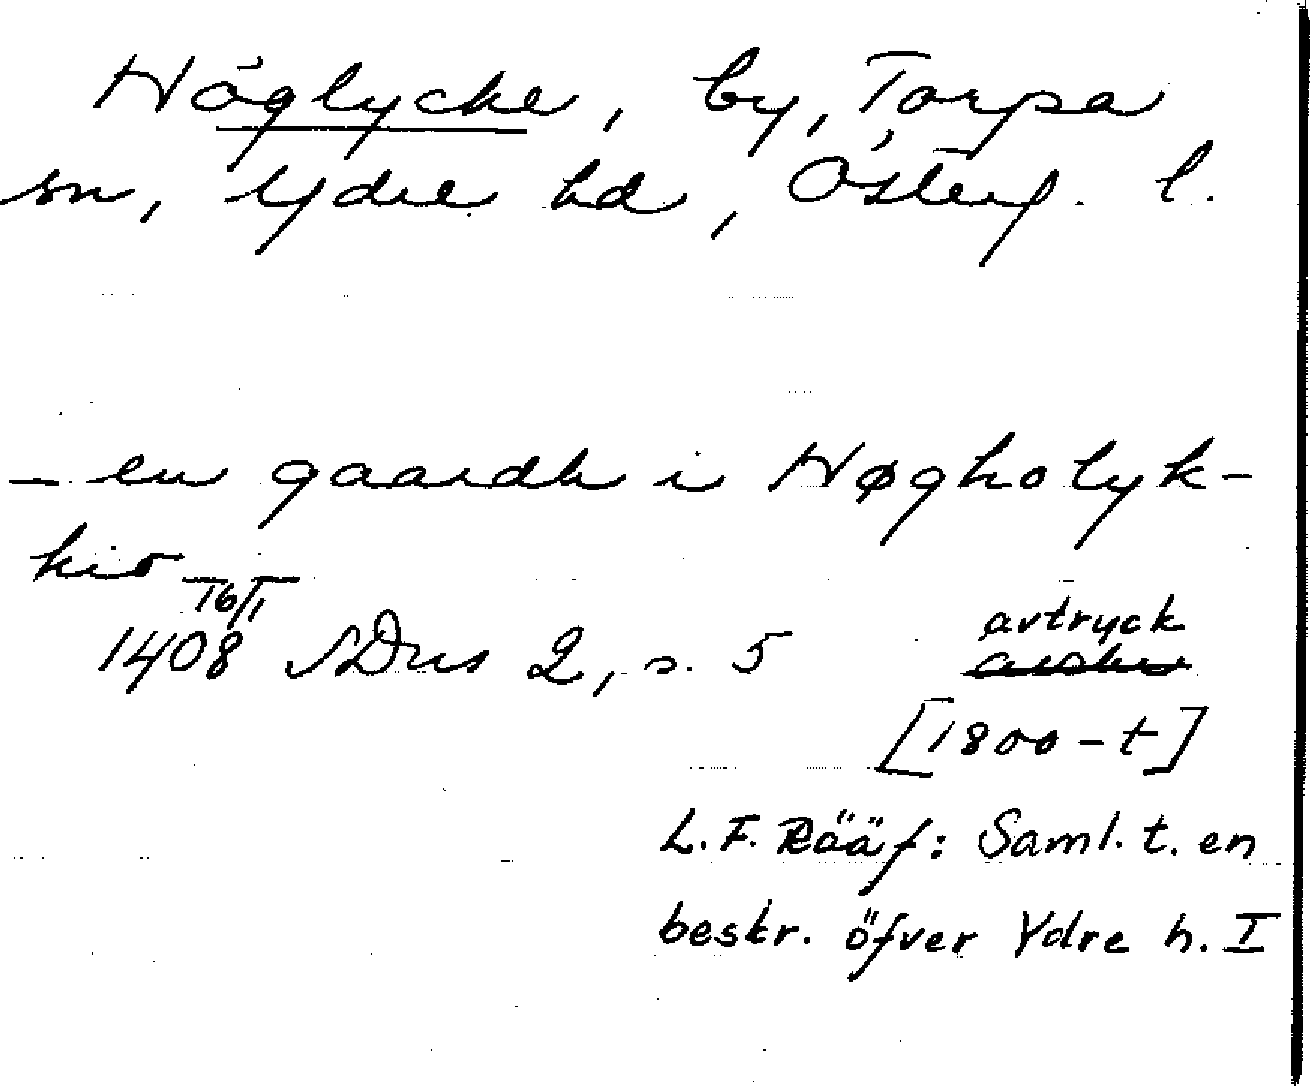 Höglycke, by, Torpa
sn, Ydre hd, Österg. l.
– en gaardh i Høgholyk-
kio
16/1
1408 SDns 2, s. 5
avtryck
[1800-t]
L. F. Rääf: Saml. t. en
beskr. öfver Ydre h. I